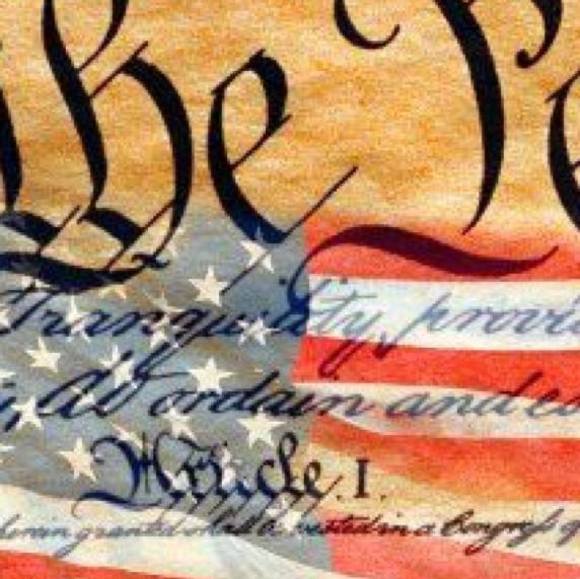 the Pe
Tranquility, provi
do ordain and es
Article. I.
herein granted shall be vested in a Congress of